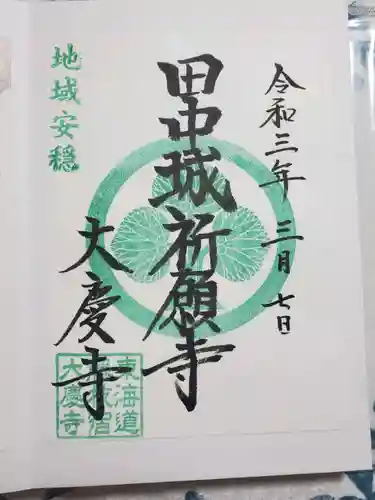 令和三年 三月 七日
田中城祈願寺
大慶寺
地域安穏
東海道
藤枝宿
大慶寺